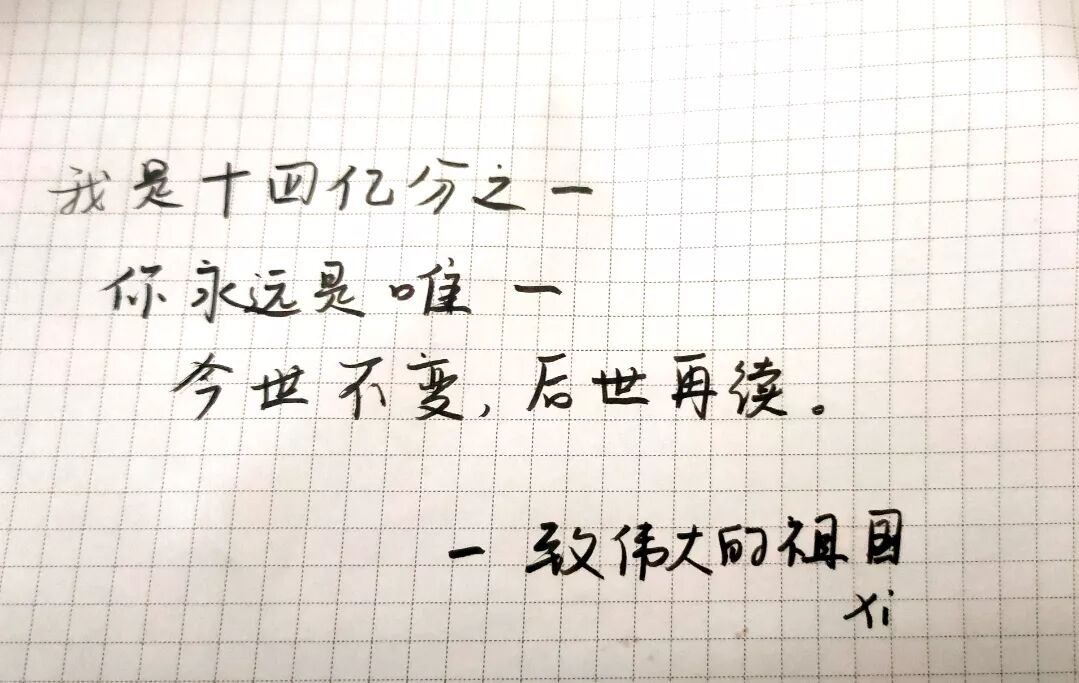 我是十四亿分之一
你永远是唯一
今世不变,后世再续。
一 致伟大的祖国
xi